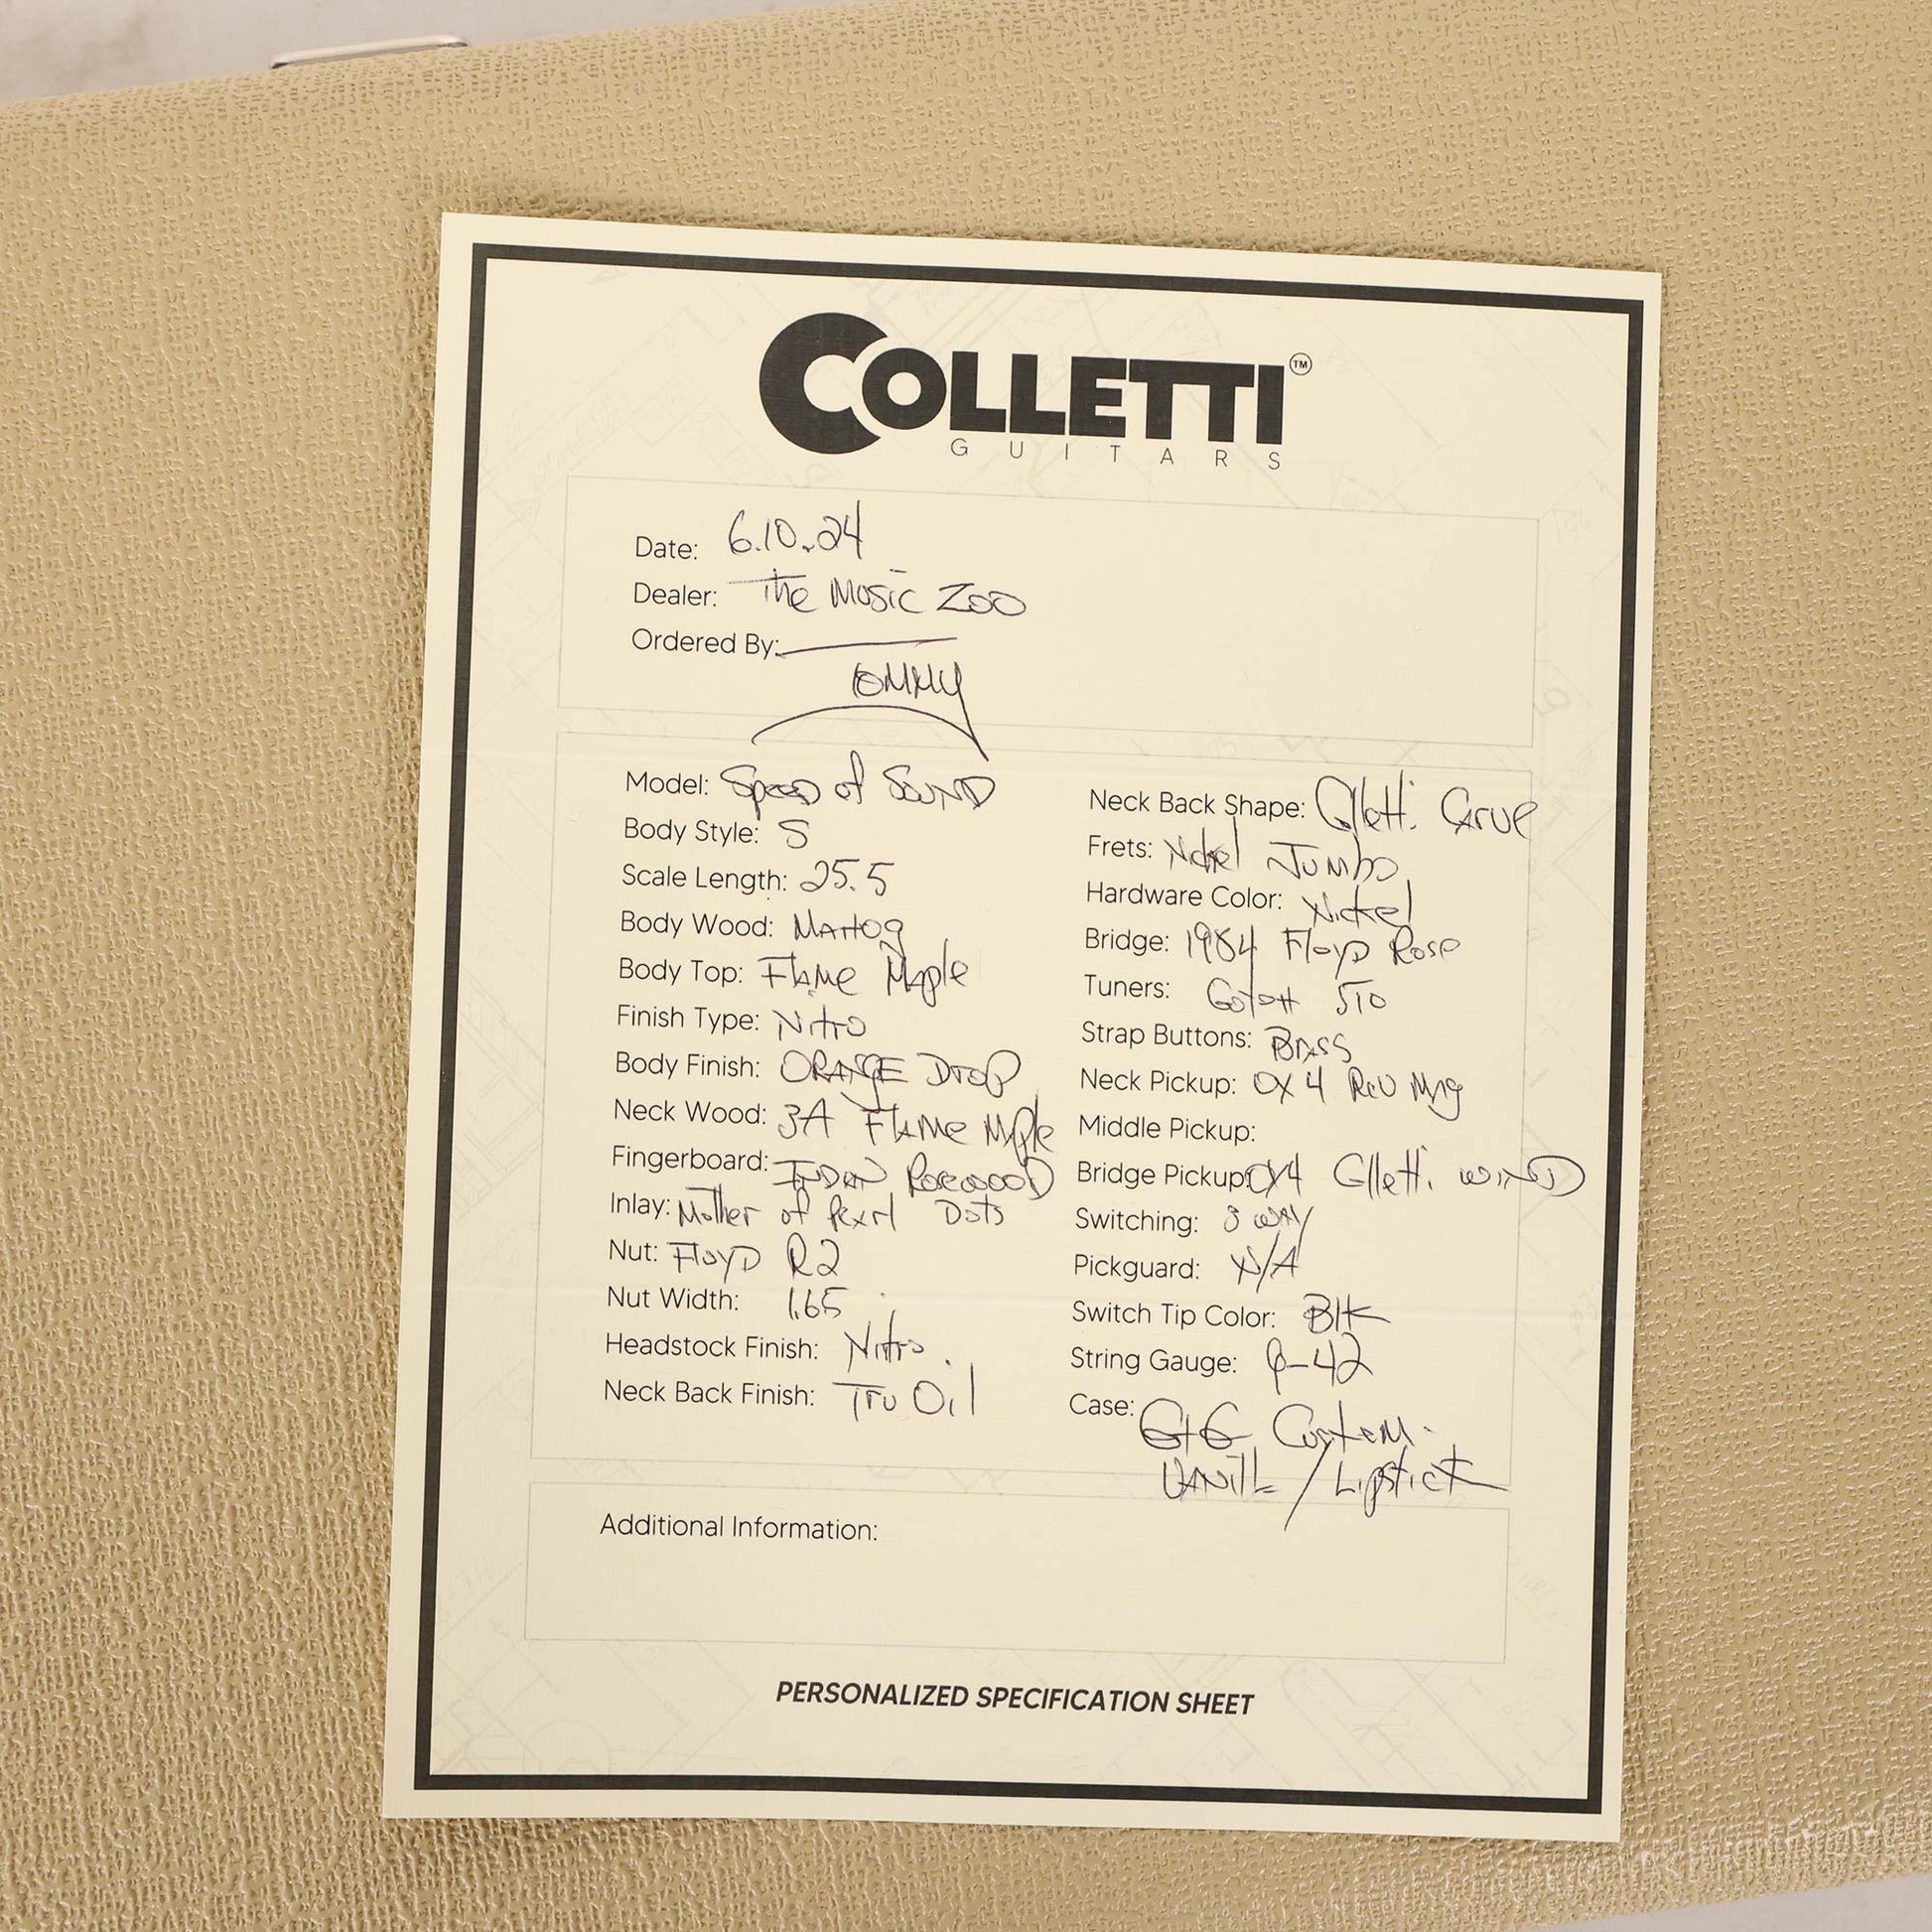 COLLETTI™
GUITARS
Date: 6.10.24
Dealer: The Music Zoo
Ordered By: Tommy
Model: Speed of Sound
Body Style: S
Scale Length: 25.5
Body Wood: Mahog
Body Top: Flame Maple
Finish Type: Nitro
Body Finish: ORANGE Drop
Neck Wood: 3A Flame Maple
Fingerboard: Indian Rosewood
Inlay: Mother of Pearl Dots
Nut: Floyd R2
Nut Width: 1.65
Headstock Finish: Nitro
Neck Back Finish: Tru Oil
Neck Back Shape: Colletti Carve
Frets: Nickel Jumbo
Hardware Color: Nickel
Bridge: 1984 Floyd Rose
Tuners: Gotoh 510
Strap Buttons: Brass
Neck Pickup: OX4 Rev Mag
Middle Pickup:
Bridge Pickup: OX4 Colletti WIND
Switching: 3 way
Pickguard: N/A
Switch Tip Color: Blk
String Gauge: 9-42
Case: G+G Custom
Vanilla / Lipstick
Additional Information:
PERSONALIZED SPECIFICATION SHEET